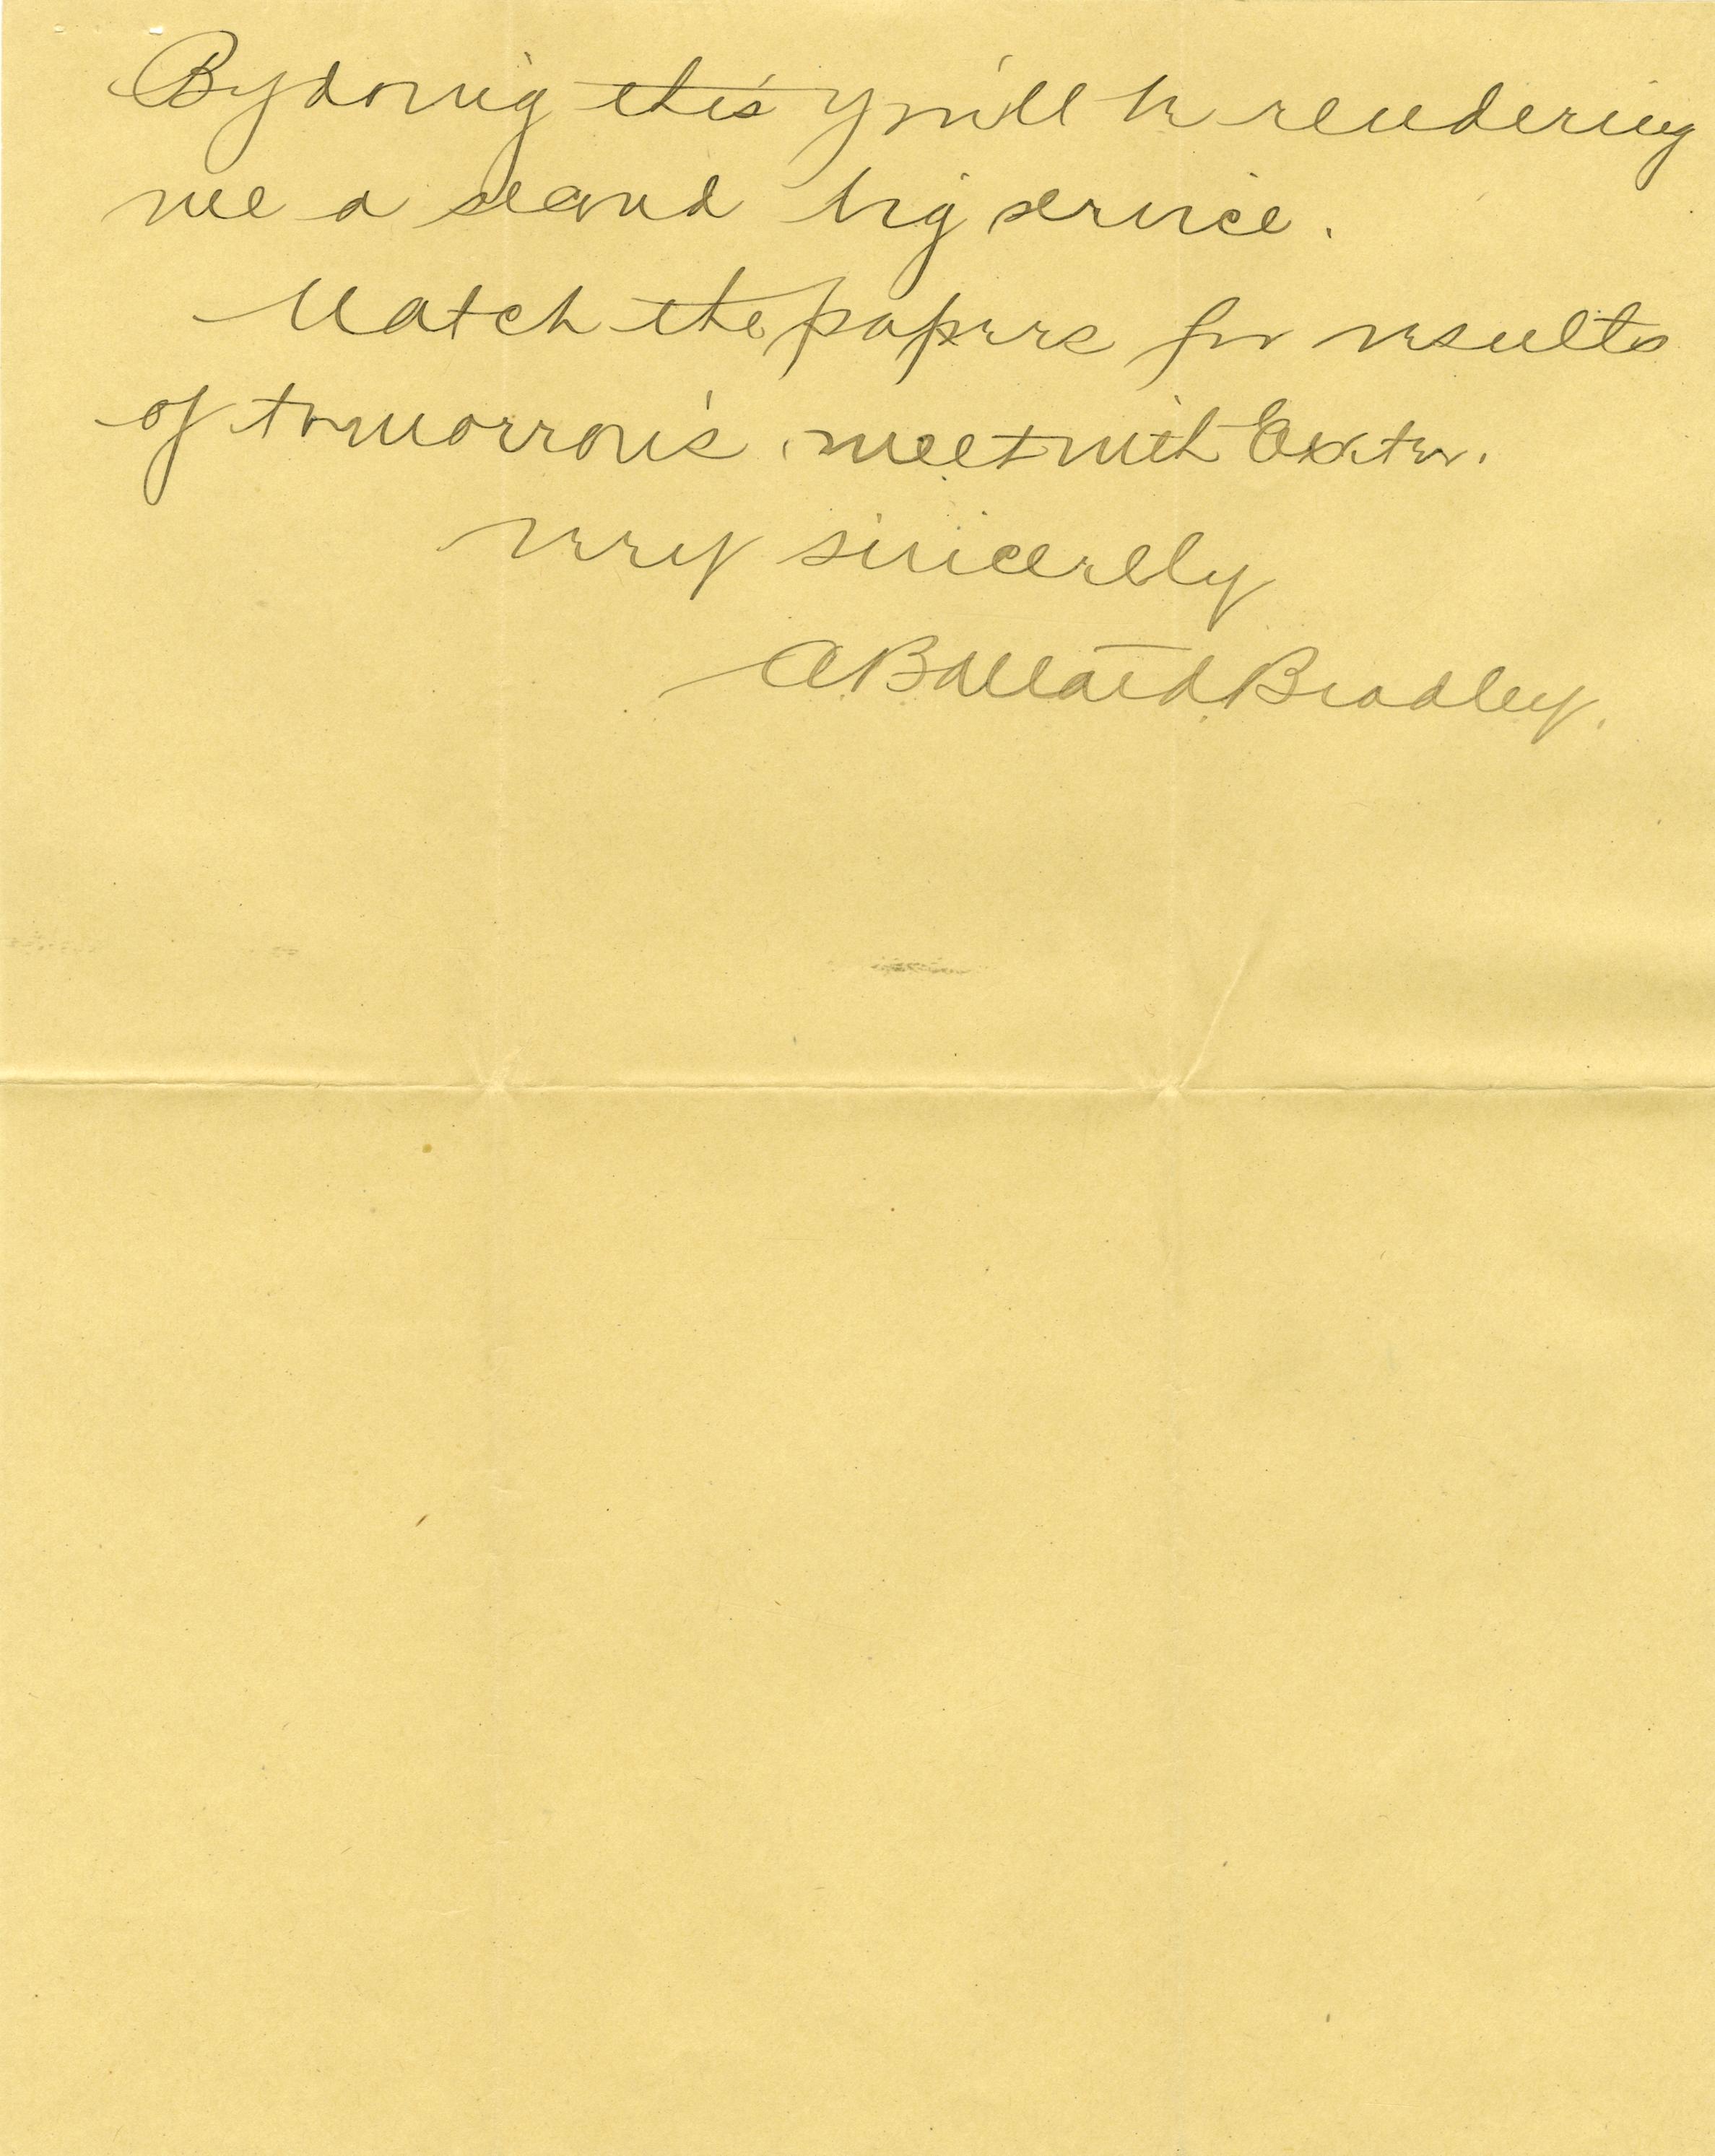 By doing this y will be rendering
me a second big service.
Watch the papers for results
of tomorrow's meet with Exeter.
Very sincerely
A Ballard Bradley.